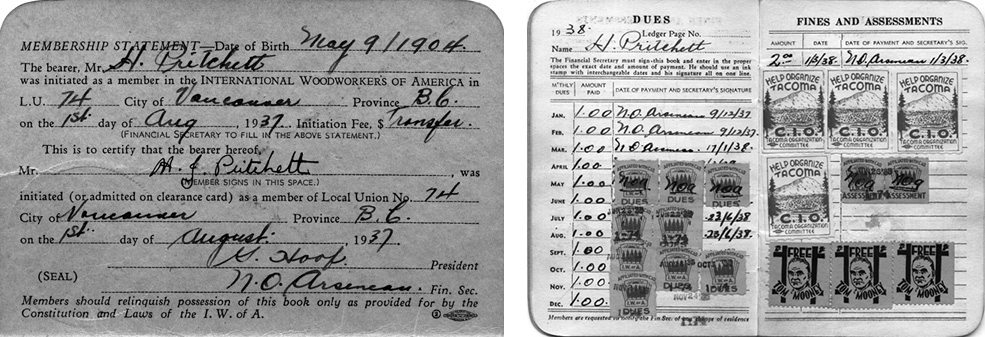 MEMBERSHIP STATEMENT—Date of Birth May 9/1904.
The bearer, Mr. H. Pritchett
was initiated as a member in the INTERNATIONAL WOODWORKERS OF AMERICA in
L.U. 74 City of Vancouver Province B.C.
on the 1st. day of Aug, 1937. Initiation Fee, $ Transfer.
(FINANCIAL SECRETARY TO FILL IN THE ABOVE STATEMENT.)
This is to certify that the bearer hereof,
Mr. H. J. Pritchett, was
(MEMBER SIGNS IN THIS SPACE.)
initiated (or admitted on clearance card) as a member of Local Union No. 74
City of Vancouver Province B.C.
on the 1st. day of August. 1937
President
(SEAL) N.O. Arseneau. Fin. Sec.
Members should relinquish possession of this book only as provided for by the
Constitution and Laws of the I. W. of A.
DUES
1938. Ledger Page No.
Name H. Pritchett
The Financial Secretary must sign this book and enter in the proper
spaces the exact date and amount of payment. He should use an ink
stamp with interchangeable dates and his signature all on one line.
M'THLY DUES AMOUNT PAID DATE OF PAYMENT AND SECRETARY'S SIGNATURE
JAN. 1.00 N.O. Arseneau 9/12/37
FEB. 1.00 N.O. Arseneau 9/12/37
MAR. 1.00 N.O. Arseneau 17/1/38
APRIL 1.00
MAY 1.00
JUNE 1.00 DUES
JULY 1.00 23/6/38
AUG. 1.00 23/6/38
SEPT. 1.00
OCT. 1.00 I.W.A. DUES
NOV. 1.00
DEC. 1.00 DUES
Members are requested to notify the Fin. Sec. of any change of residence
FINES AND ASSESSMENTS
AMOUNT DATE DATE OF PAYMENT AND SECRETARY'S SIG.
2.00 1/3/38. N.O. Arseneau 1/3/38.
HELP ORGANIZE TACOMA C.I.O. TACOMA ORGANIZATION COMMITTEE
HELP ORGANIZE TACOMA C.I.O. TACOMA ORGANIZATION COMMITTEE
HELP ORGANIZE TACOMA C.I.O. TACOMA ORGANIZATION COMMITTEE
HELP ORGANIZE TACOMA C.I.O. TACOMA ORGANIZATION COMMITTEE
ASSESSMENT ASSESSMENT
FREE TOM MOONEY
FREE TOM MOONEY
FREE TOM MOONEY